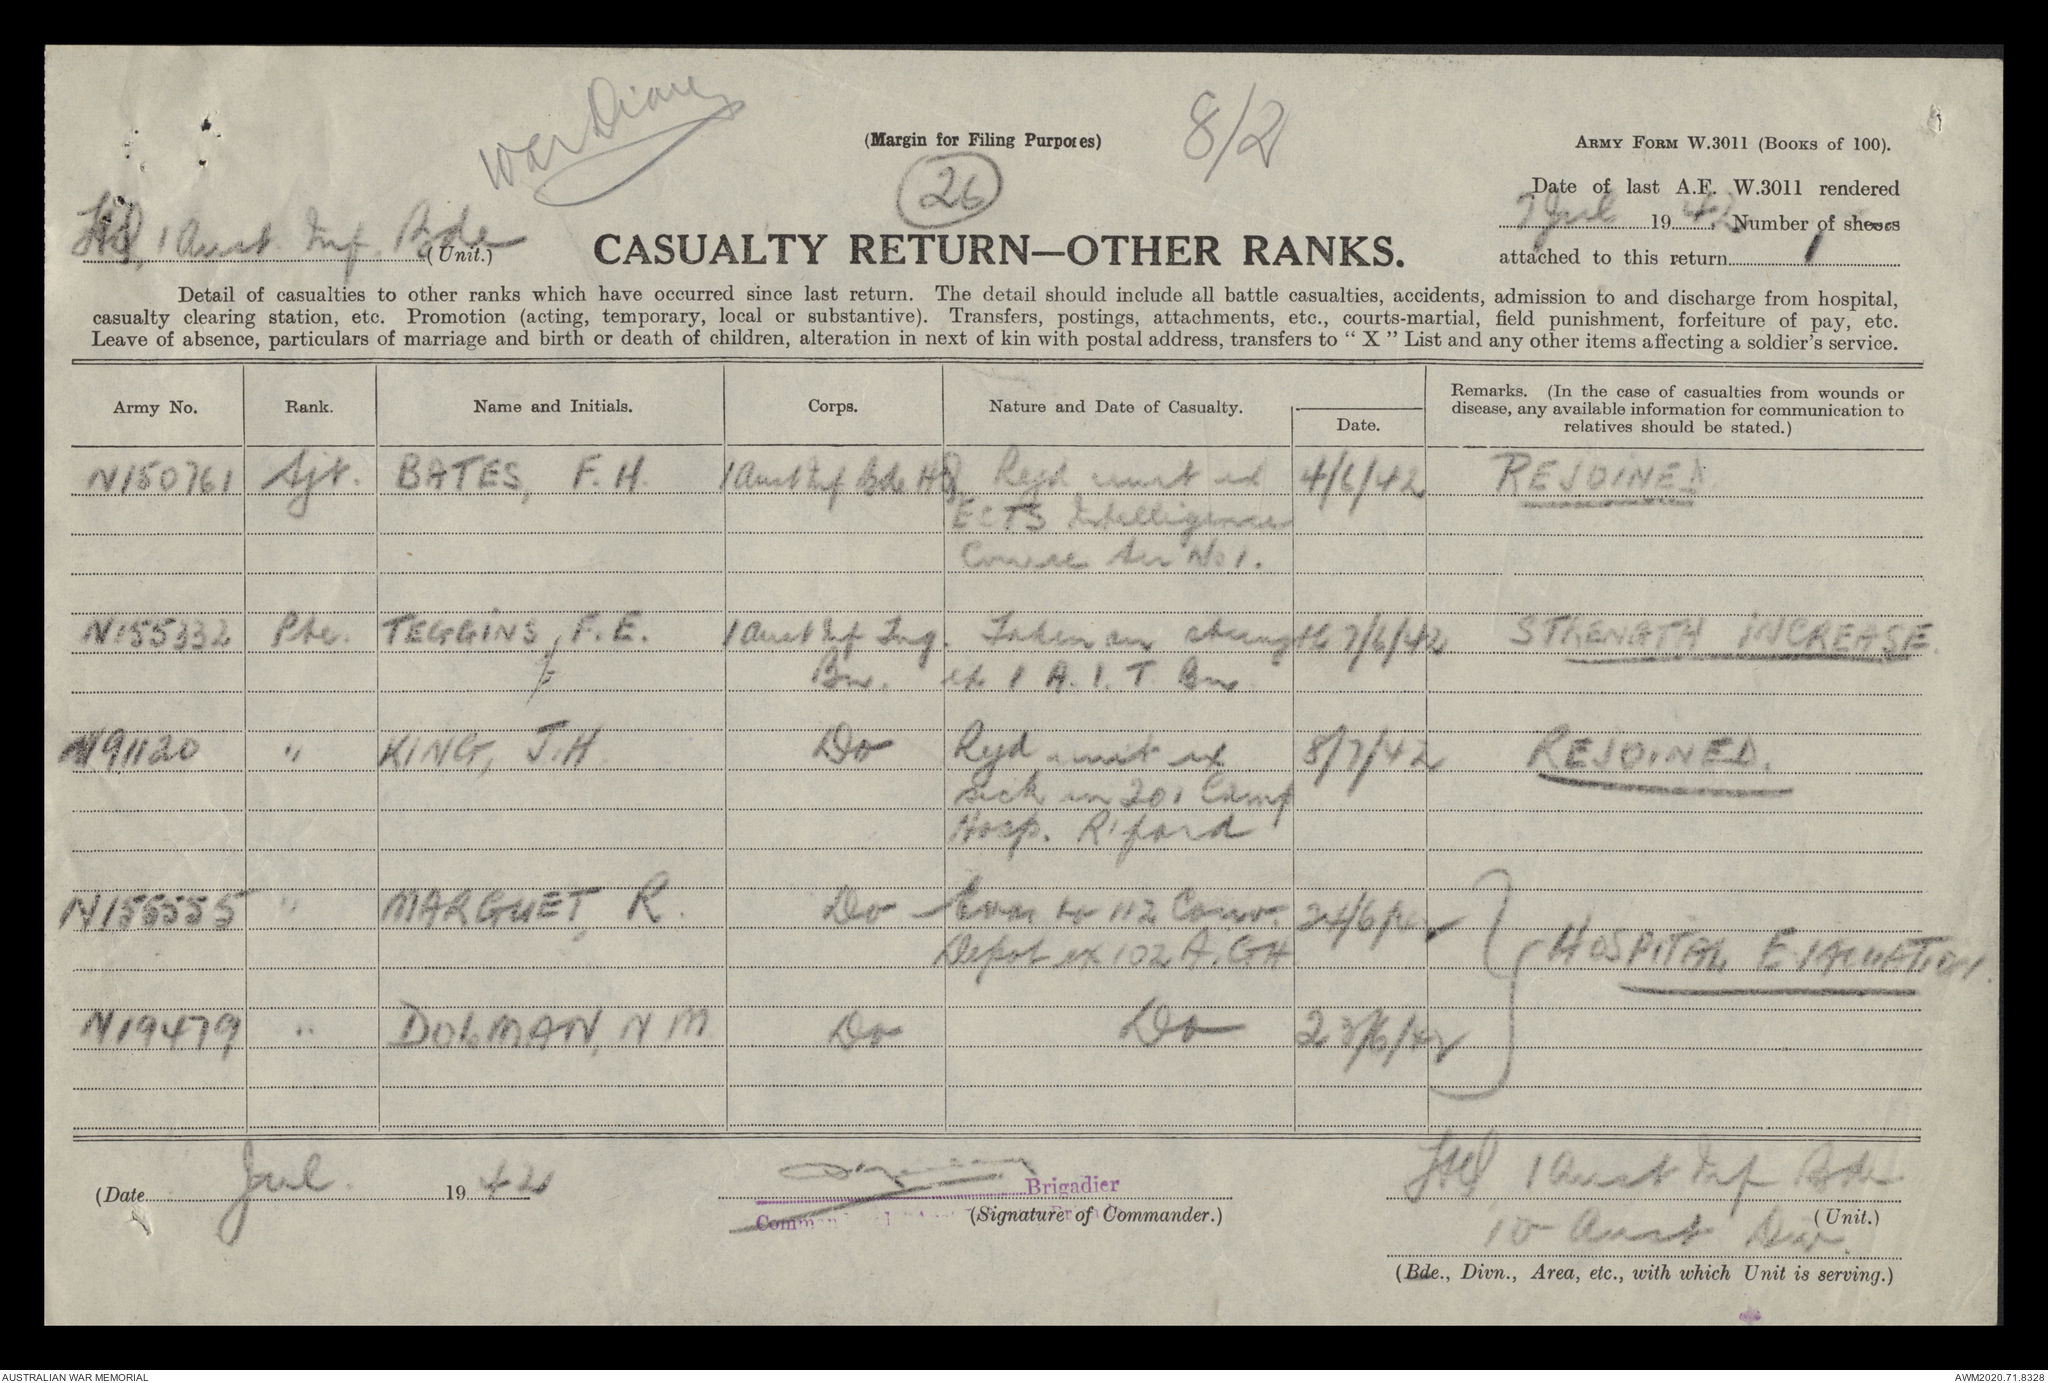 War Diary
(Margin for Filing Purposes)
8/2
Army Form W.3011 (Books of 100).
26
Date of last A.F. W.3011 rendered
7 Jul 1942 Number of sheets
attached to this return 1
HQ, 1 Aust. Inf. Bde (Unit.)
CASUALTY RETURN—OTHER RANKS.
Detail of casualties to other ranks which have occurred since last return. The detail should include all battle casualties, accidents, admission to and discharge from hospital,
casualty clearing station, etc. Promotion (acting, temporary, local or substantive). Transfers, postings, attachments, etc., courts-martial, field punishment, forfeiture of pay, etc.
Leave of absence, particulars of marriage and birth or death of children, alteration in next of kin with postal address, transfers to "X" List and any other items affecting a soldier's service.
Army No. Rank. Name and Initials. Corps. Nature and Date of Casualty. Date. Remarks. (In the case of casualties from wounds or
disease, any available information for communication to
relatives should be stated.)
N150761 Sjt. BATES, F. H. 1 Aust Inf Bde HQ Rejd unit ex 4/6/42 REJOINED
ECTS Intelligence
Course Ser No 1.
N155332 Pte. TEGGINS, F. E. 1 Aust Inf Trg. Taken on strength 7/6/42 STRENGTH INCREASE.
Bn. ex 1 A. I. T. Bn
N91120 " KING, J.H Do Rejd unit ex 8/7/42 REJOINED.
sick in 201 Camp
Hosp. R'ford
N155555 " MARGUET R. Do Evac to 112 Conv. 24/6/42 HOSPITAL EVACUATION.
Depot ex 102 A. GH
N19479 " DOLMAN, N M Do Do 23/6/42
(Date Jul. 1942
Brigadier
(Signature of Commander.)
HQ, 1 Aust Inf Bde
(Unit.)
10 Aust Div.
(Bde., Divn., Area, etc., with which Unit is serving.)
AUSTRALIAN WAR MEMORIAL
AWM2020.71.8328